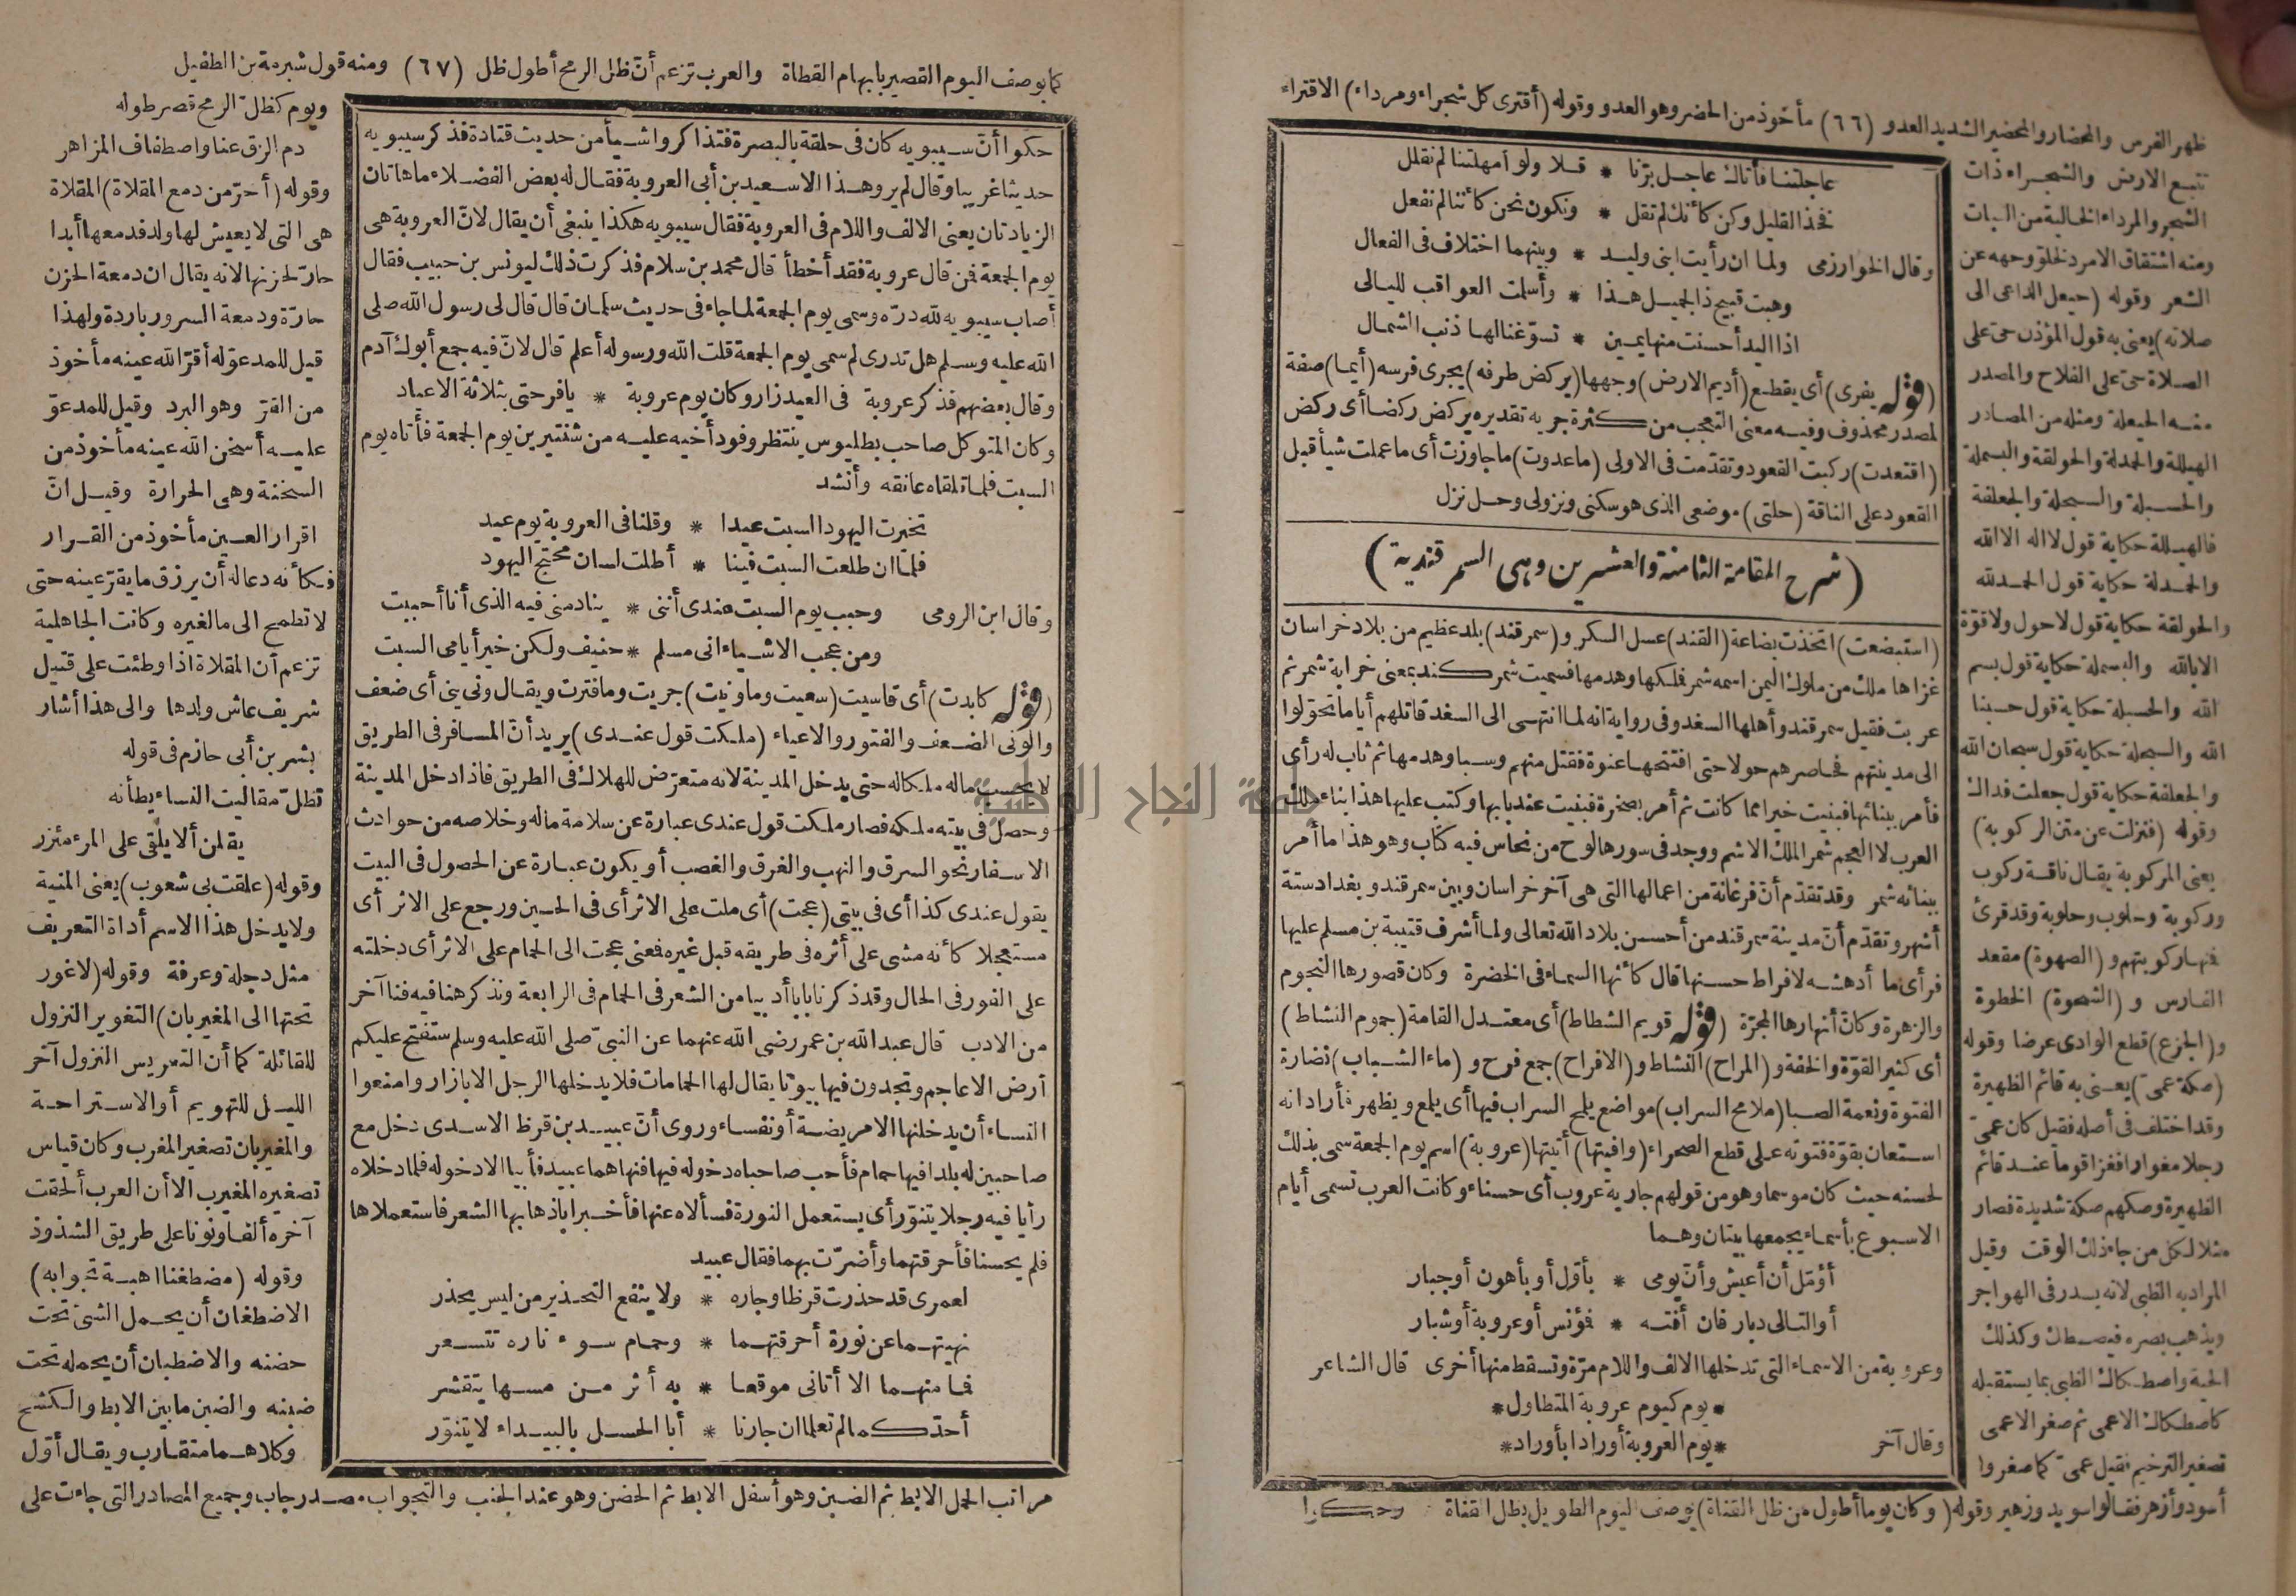 ظهر الفرس والمحضار والمحضير الشديد العدو (٦٦) مأخوذ من الحضر وهو العدو وقوله (أقترى كل شجراء ومرداء) الاقتراء
تتبع الارض والشجراء ذات
الشجر والمرداء الخالية من النبات
ومنه اشتقاق الامرد لخلو وجهه عن
الشعر وقوله (حيعل الداعى الى
صلاته) يعنى به قول المؤذن حى على
الصلاة حى على الفلاح والمصدر
منه الحيعلة ومثله من المصادر
الهيللة والحمدلة والحولقة والبسملة
والحسبلة والسبحلة والجعلفة
فالهيللة حكاية قول لا اله الا الله
والحمدلة حكاية قول الحمد لله
والحولقة حكاية قول لا حول ولا قوة
الا بالله والبسملة حكاية قول بسم
الله والحسبلة حكاية قول حسبنا
الله والسبحلة حكاية قول سبحان الله
والجعلفة حكاية قول جعلت فداك
وقوله (فنزلت عن متن الركوبة)
يعنى المركوبة يقال ناقة ركوب
وركوبة وحلوب وحلوبة وقد قرئ
فنها ركوبتهم و(الصهوة) مقعد
الفارس و (الشحوة) الخطوة
و(الجزع) قطع الوادى عرضا وقوله
(صكة عمى) يعنى به قائم الظهيرة
وقد اختلف فى أصله فقيل كان عمى
رجلا مغوارا فغزا قوما عند قائم
الظهيرة وصكهم صكة شديدة فصار
مثلا لكل من جاء ذلك الوقت وقيل
المراد به الظبى لانه يسدر فى الهواجر
ويذهب بصره فيصطك وكذلك
الحية واصطكاك الظبى بما يستقبله
كاصطكاك الاعمى ثم صغر الاعمى
تصغير الترخيم فقيل عمى كما صغروا
أسود وأزهر فقالوا سويد وزهير وقوله (وكان يوما أطول من ظل القناة) يوصف اليوم الطويل بظل القناة
عاجلتنا فأتاك عاجل برّنا * قلا ولو أمهلتنا لم نقلل
فخذ القليل وكن كأنك لم تقل * ونكون نحن كأننا لم نفعل
وقال الخوارزمى ولما ان رأيت ابنى وليد * وبينهما اختلاف فى الفعال
وهبت قبيح ذا لجميل هذا * وأسلمت العواقب لليالى
اذا اليد أحسنت منها يمين * تسوّغنا لها ذنب الشمال
(قوله يفرى) أى يقطع (أديم الارض) وجهها (يركض طرفه) يجرى فرسه (أيما) صفة
لمصدر محذوف وفيه معنى التعجب من كثرة جريه تقديره يركض ركضا أى ركض
(اقتعدت) ركبت القعود وتقدّمت فى الاولى (ما عدوت) ما جاوزت أى ما عملت شيأ قبل
القعود على الناقة (حلتى) موضعى الذى هو سكنى ونزولى وحل نزل
(شرح المقامة الثامنة والعشرين وهى السمرقندية)
(استبضعت) اتخذت بضاعة (القند) عسل السكر و(سمرقند) بلد عظيم من بلاد خراسان
غزاها ملك من ملوك اليمن اسمه شمر فملكها وهدمها فسميت شمركند بمعنى خرابة شمر ثم
عربت فقيل سمرقند وأهلها السغد وفى رواية انه لما انتهى الى السغد قاتلهم أياما تحوّلوا
الى مدينتهم فحاصرهم حولا حتى افتتحها عنوة فقتل منهم وسبا وهدمها ثم ثاب له رأى
فأمر ببنائها فبنيت خيرا مما كانت ثم أمر بصخرة فبنيت عند بابها وكتب عليها هذا بناء ملك
العرب لا العجم شمر الملك الاشم ووجد فى سورها لوح من نحاس فيه كتاب وهو هذا ما أمر
ببنائه شمر وقد تقدّم أنّ فرغانة من اعمالها التى هى آخر خراسان وبين سمرقند وبغداد ستة
أشهر وتقدّم أنّ مدينة سمرقند من أحسن بلاد الله تعالى ولما أشرف قتيبة بن مسلم عليها
فرأى ما أدهشه لافراط حسنها قال كأنها السماء فى الخضرة وكان قصورها النجوم
والزهرة وكانّ أنهارها المجرّة (قوله قويم الشطاط) أى معتدل القامة (جموم النشاط)
أى كثير القوّة والخفة و(المراح) النشاط و(الافراح) جمع فرح و (ماء الشباب) نضارة
الفتوة ونعمة الصبا (ملامح السراب) مواضع يلمح السراب فيها أى يلمع ويظهر فأراد انه
استعان بقوّة فتوته على قطع الصحراء (وافيتها) أتيتها (عروبة) اسم يوم الجمعة سمى بذلك
لحسنه حيث كان موسما وهو من قولهم جارية عروب أى حسناء وكانت العرب تسمى أيام
الاسبوع بأسماء يجمعها بيتان وهما
أؤمّل أن أعيش وأنّ يومى * بأوّل أو بأهون أو جبار
أو التالى دبار فان أفته * فؤنس أو عروبة أو شبار
وعروبة من الاسماء التى تدخلها الالف واللام مرّة وتسقط منها أخرى قال الشاعر
*يوم كيوم عروبة المتطاول*
وقال آخر *يوم العروبة أورادا بأوراد*
وحكوا
كما يوصف اليوم القصير بابهام القطاة والعرب تزعم أنّ ظل الرمح أطول ظل (٦٧) ومنه قول شبرمة بن الطفيل
حكوا أنّ سيبويه كان فى حلقة بالبصرة فتذاكروا شيأ من حديث قتادة فذكر سيبويه
حديثا غريبا وقال لم يرو هذا الا سعيد بن أبى العروبة فقال له بعض الفضلاء ما هاتان
الزيادتان يعنى الالف واللام فى العروبة فقال سيبويه هكذا ينبغى أن يقال لانّ العروبة هى
يوم الجمعة فمن قال عروبة فقد أخطأ قال محمد بن سلام فذكرت ذلك ليونس بن حبيب فقال
أصاب سيبويه لله درّه وسمى يوم الجمعة لما جاء فى حديث سلمان قال قال لى رسول الله صلى
الله عليه وسلم هل تدرى لم سمى يوم الجمعة قلت الله ورسوله أعلم قال لانّ فيه جمع أبوك آدم
وقال بعضهم فذكر عروبة فى العيد زار وكان يوم عروبة * يا فرحتى بثلاثة الاعياد
وكان المتوكل صاحب بطليوس ينتظر وفود أخيه عليه من شنترين يوم الجمعة فأتاه يوم
السبت فلما تلقاه عانقه وأنشد
تخيرت اليهود السبت عيدا * وقلنا فى العروبة يوم عيد
فلما ان طلعت السبت فينا * أطلت لسان محتج اليهود
وقال ابن الرومى وحبب يوم السبت عندى أننى * ينادمنى فيه الذى أنا أحببت
ومن عجب الاشياء انى مسلم * حنيف ولكن خير أيامى السبت
(قوله كابدت) أى قاسيت (سعيت وما ونيت) جريت وما فترت ويقال ونى ينى أى ضعف
والونى الضعف والفتور والاعياء (ملكت قول عندى) يريد أنّ المسافر فى الطريق
لا يحسب ماله ملكا له حتى يدخل المدينة لانه متعرّض للهلاك فى الطريق فاذا دخل المدينة
وحصل فى بيته ملكه فصار ملكت قول عندى عبارة عن سلامة ماله وخلاصه من حوادث
الاسفار نحو السرق والنهب والغرق والغصب أو يكون عبارة عن الحصول فى البيت
يقول عندى كذا أى فى بيتى (عجت) أى ملت على الاثر أى فى الحين ورجع على الاثر أى
مستعجلا كأنه مشى على أثره فى طريقه قبل غيره فعنى عجت الى الحمام على الاثر أى دخلته
على الفور فى الحال وقد ذكرنا بابا أدبيا من الشعر فى الحمام فى الرابعة ونذكر هنا فيه فنا آخر
من الادب قال عبد الله بن عمر رضى الله عنهما عن النبىّ صلى الله عليه وسلم ستفتح عليكم
أرض الاعاجم وتجدون فيها بيوتا يقال لها الحمامات فلا يدخلها الرجل الا بازار وامنعوا
النساء أن يدخلنها الا مريضة أو نفساء وروى أنّ عبيد بن قرظ الاسدى دخل مع
صاحبين له بلدا فيها حمام فأحب صاحباه دخوله فيها فنهاهما عبيد فأبيا الا دخوله فلما دخلاه
رأيا فيه رجلا يتنوّر أى يستعمل النورة فسألاه عنها فأخبر اباذهابها الشعر فاستعملاها
فلم يحسنا فأحرقتهما وأضرّت بهما فقال عبيد
لعمرى قد حذرت قرظا وجاره * ولا ينفع التحذير من ليس يحذر
نهيتهما عن نورة أحرقتهما * وحمام سوء ناره تتسعر
فما منهما الا أتانى موقعا * به أثر من مسها يتقشر
أجدّكما لم تعلما ان جارنا * أبا الحسل بالبيداء لا يتنوّر
ويوم كظل الرمح قصر طوله
دم الزق عنا واصطفاف المزاهر
وقوله (أحرّ من دمع المقلاة) المقلاة
هى التى لا يعيش لها ولد فدمعها أبدا
حارّ لحزنها لانه يقال ان دمعة الحزن
حارّة ودمعة السرور باردة ولهذا
قيل للمدعوّ له أقرّ الله عينه مأخوذ
من القرّ وهو البرد وقيل للمدعوّ
عليه أسخن الله عينه مأخوذ من
السخنة وهى الحرارة وقيل انّ
اقرار العين مأخوذ من القرار
فكأنه دعا له أن يرزق ما يقرّ عينه حتى
لا تطمح الى ما لغيره وكانت الجاهلية
تزعم أن المقلاة اذا وطئت على قتيل
شريف عاش ولدها والى هذا أشار
بشر بن أبى حازم فى قوله
تظلّ مقاليت النساء يطأنه
يقلن ألا يلقى على المرء مئزر
وقوله (علقت بى شعوب) يعنى المنية
ولا يدخل هذا الاسم أداة التعريف
مثل دجلة وعرفة وقوله (لاغور
تحتها الى المغيربان) التغوير النزول
للقائلة كما أن التعريس النزول آخر
الليل للتهويم أو الاستراحة
والمغيربان تصغير المغرب وكان قياس
تصغيره المغيرب الا أن العرب ألحقت
آخره ألفا ونونا على طريق الشذوذ
وقوله (مضطغنا اهبة تجوابه)
الاضطغان أن يحمل الشئ تحت
حضنه والاضطبان أن يحمله تحت
ضبنه والضبن ما بين الابط والكشح
وكلاهما متقارب ويقال أوّل
مراتب الحمل الابط ثم الضبن وهو أسفل الابط ثم الحضن وهو عند الجنب والتجواب مصدر جاب وجميع المصادر التى جاءت على